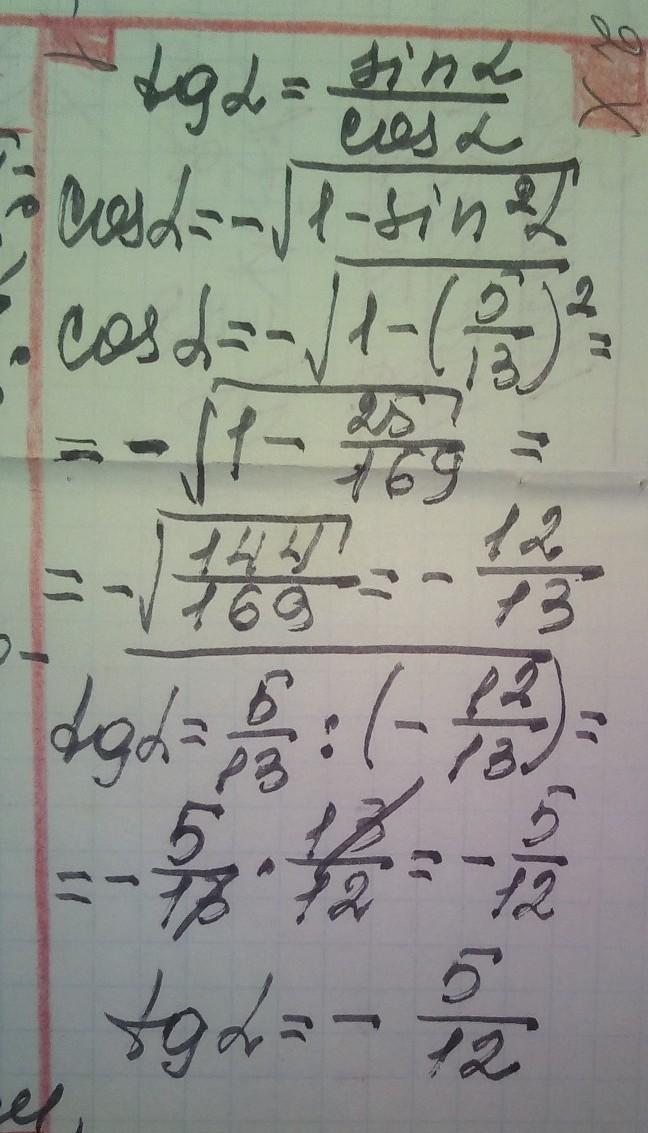 tg α = sin α / cos α
cos α = -√(1 - sin² α)
cos α = -√(1 - (5/13)²) =
= -√(1 - 25/169) =
= -√(144/169) = - 12/13
tg α = 5/13 : (- 12/13) =
= - 5/13 · 13/12 = - 5/12
tg α = - 5/12